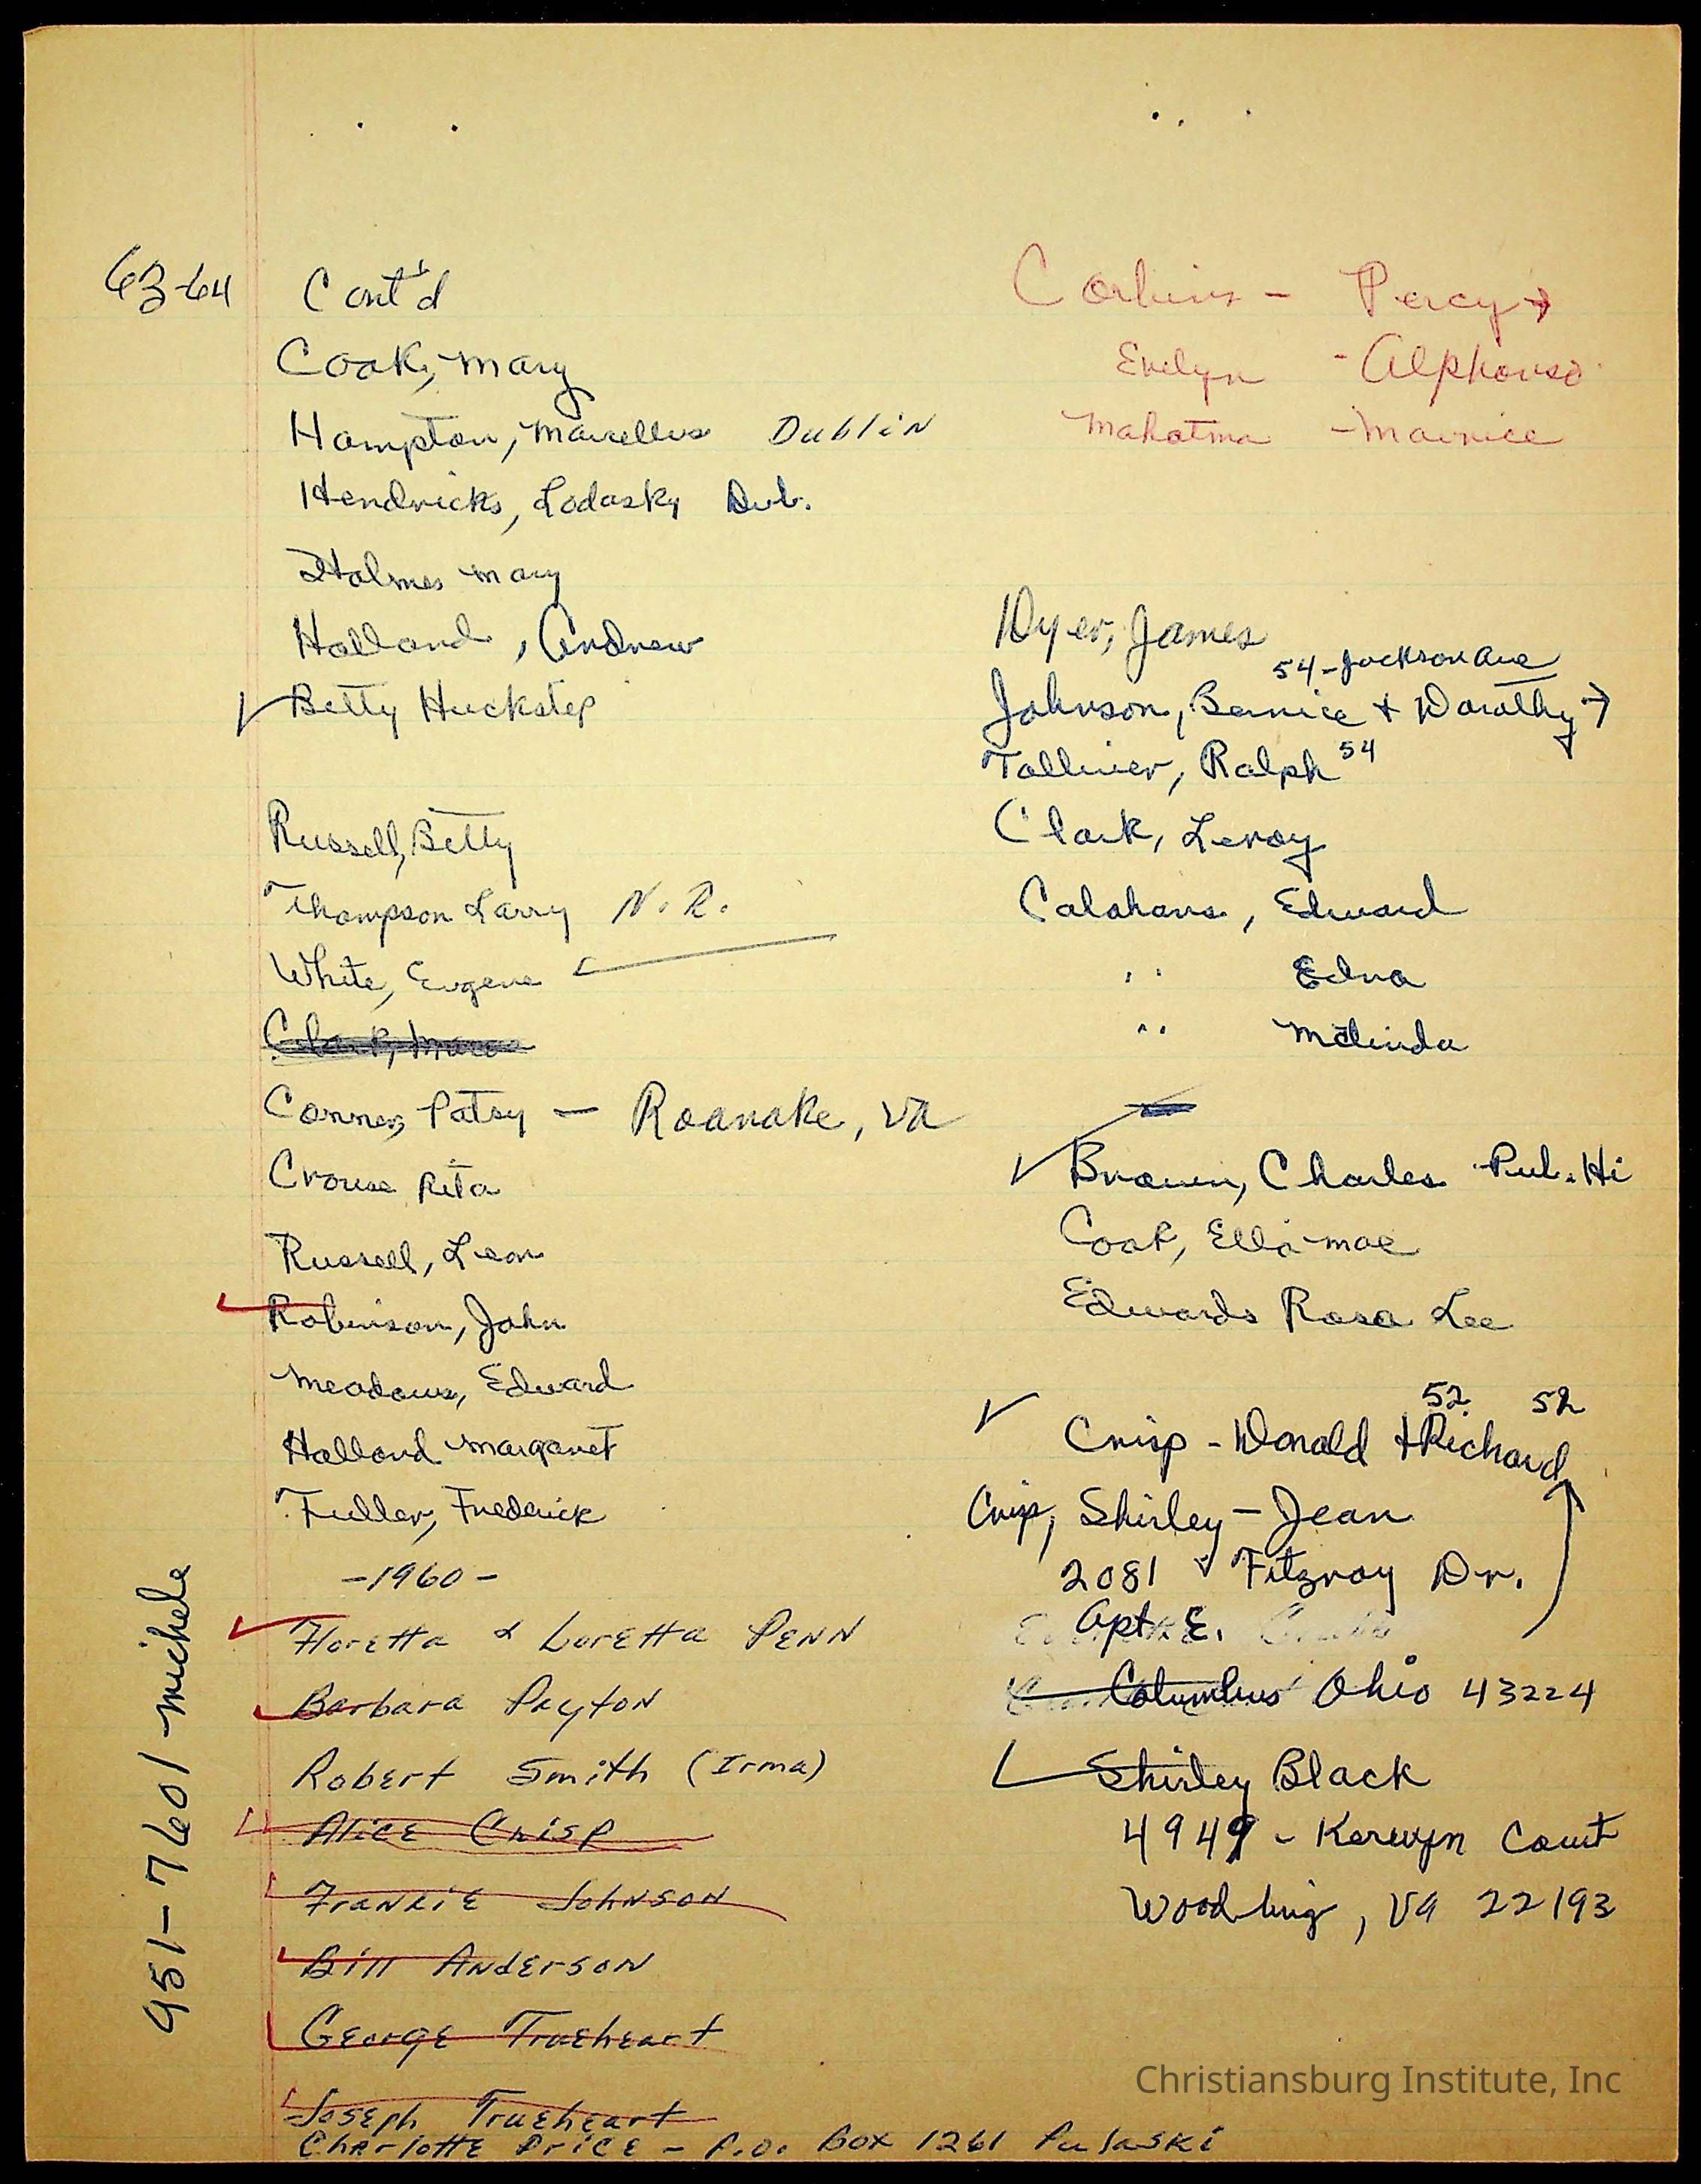 63-64 Cont'd
Cook, Mary
Hampton, Marcellus Dublin
Hendricks, Lodasky Dub.
Holmes Mary
Holland, Andrew
Betty Huckstep
Russell, Betty
Thompson Larry N.R.
White, Eugene
Clark,
Conner, Patsy — Roanoke, VA
Crouse Rita
Russell, Leon
Robinson, John
Meadows, Edward
Holland Margaret
Fuller, Frederick
-1960-
Floretta & Loretta PENN
Barbara Peyton
Robert Smith (Irma)
Alice Crisp
Frankie Johnson
Bill Anderson
George Trueheart
Joseph Trueheart
Charlotte Price - P.O. Box 1261 Pulaski
951-7601 Michele
Corbins - Percy →
Evelyn - Alphonso
Mahatma - Maurice
Dyer, James
54-Jackson Ave
Johnson, Bernice & Dorothy →
Talliver, Ralph 54
Clark, Leroy
Calahans, Edward
" Edna
" Melinda
Brown, Charles Pul. Hi
Cook, Ella mae
Edwards Rosa Lee
52 52
Crisp - Donald & Richard
Crisp, Shirley - Jean
2081 Fitzroy Dr.
Apt. E.
Columbus Ohio 43224
Shirley Black
4949 - Kerwyn Court
Woodbrig, VA 22193
Christiansburg Institute, Inc